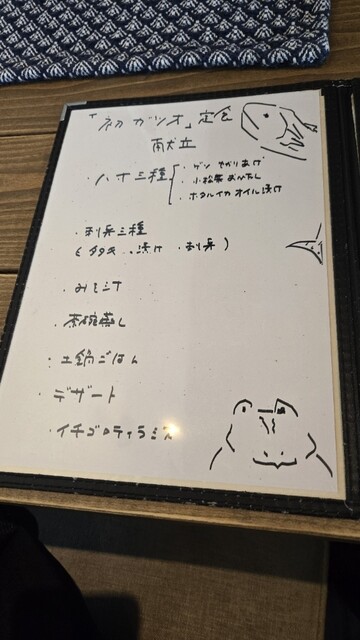 「初ガツオ」定食
献立
・八寸三種
・ゲソ せかりあげ
・小松菜おひたし
・ホタルイカ オイル漬け
・刺身三種
(タタキ・漬け・刺身)
・みそ汁
・茶碗蒸し
・土鍋ごはん
・デザート
・イチゴのティラミス